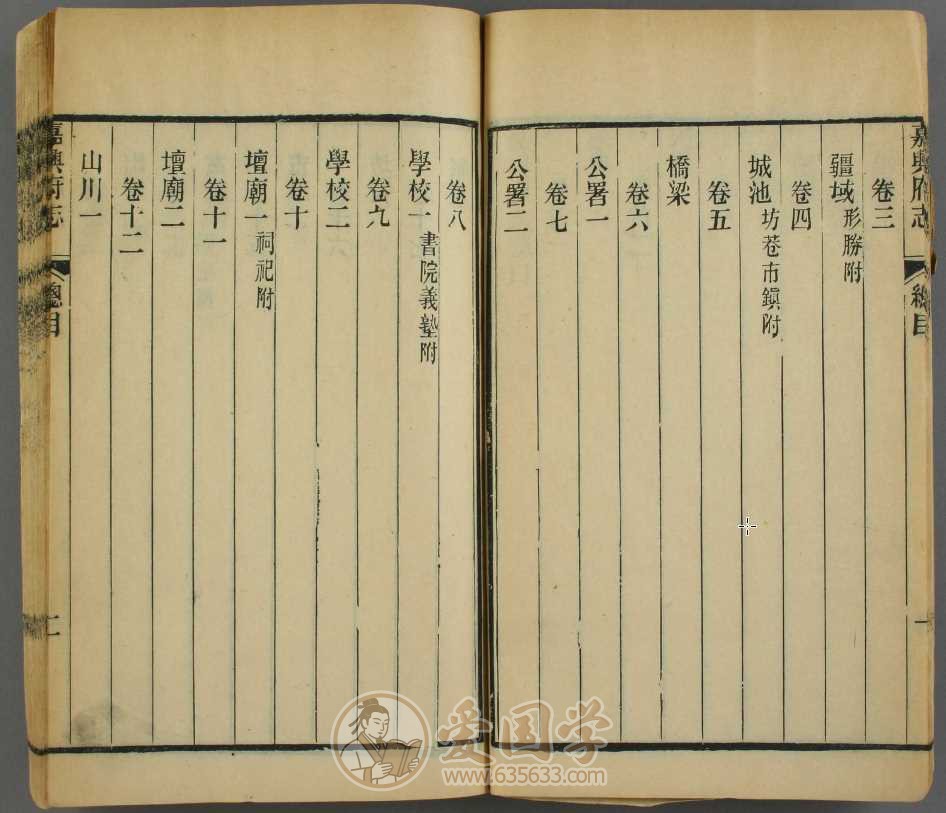 嘉興府志 總目 一
卷三
疆域 形勝附
卷四
城池 坊巷市鎭附
卷五
橋梁
卷六
公署一
卷七
公署二
卷八
學校一 書院義塾附
卷九
學校二
卷十
壇廟一 祠祀附
卷十一
壇廟二
卷十二
山川一
嘉興府志 總目 二
爱国学
www.635633.com